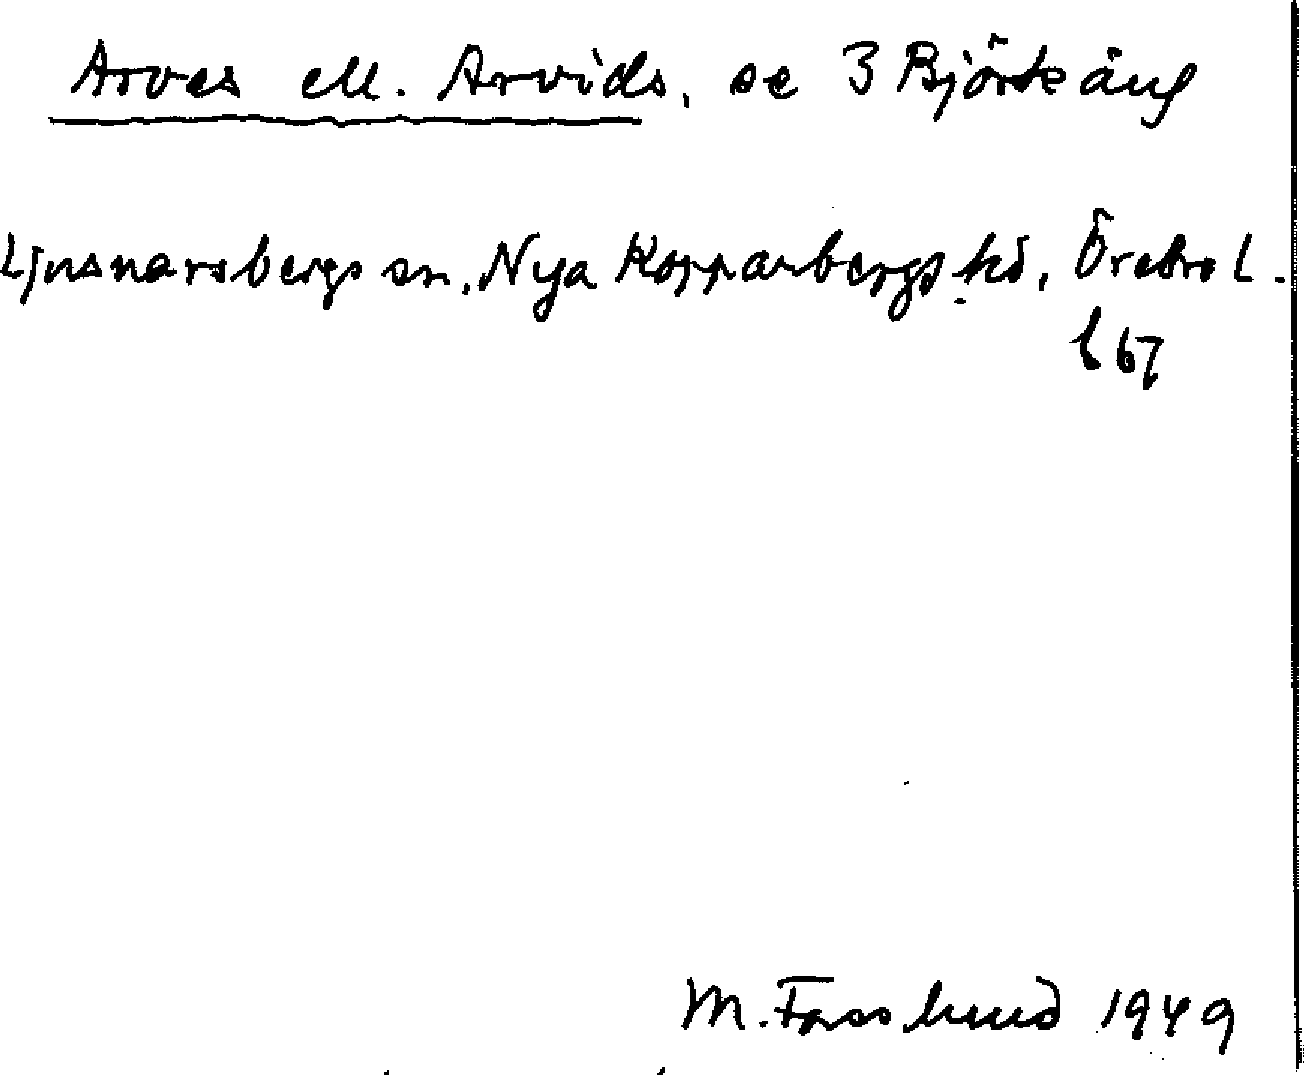 Arves ell. Arvids, se 3 Björkäng
Ljusnarsbergs sn, Nya Kopparbergs hd, Örebro L.
l 67
M. Fosslund 1949